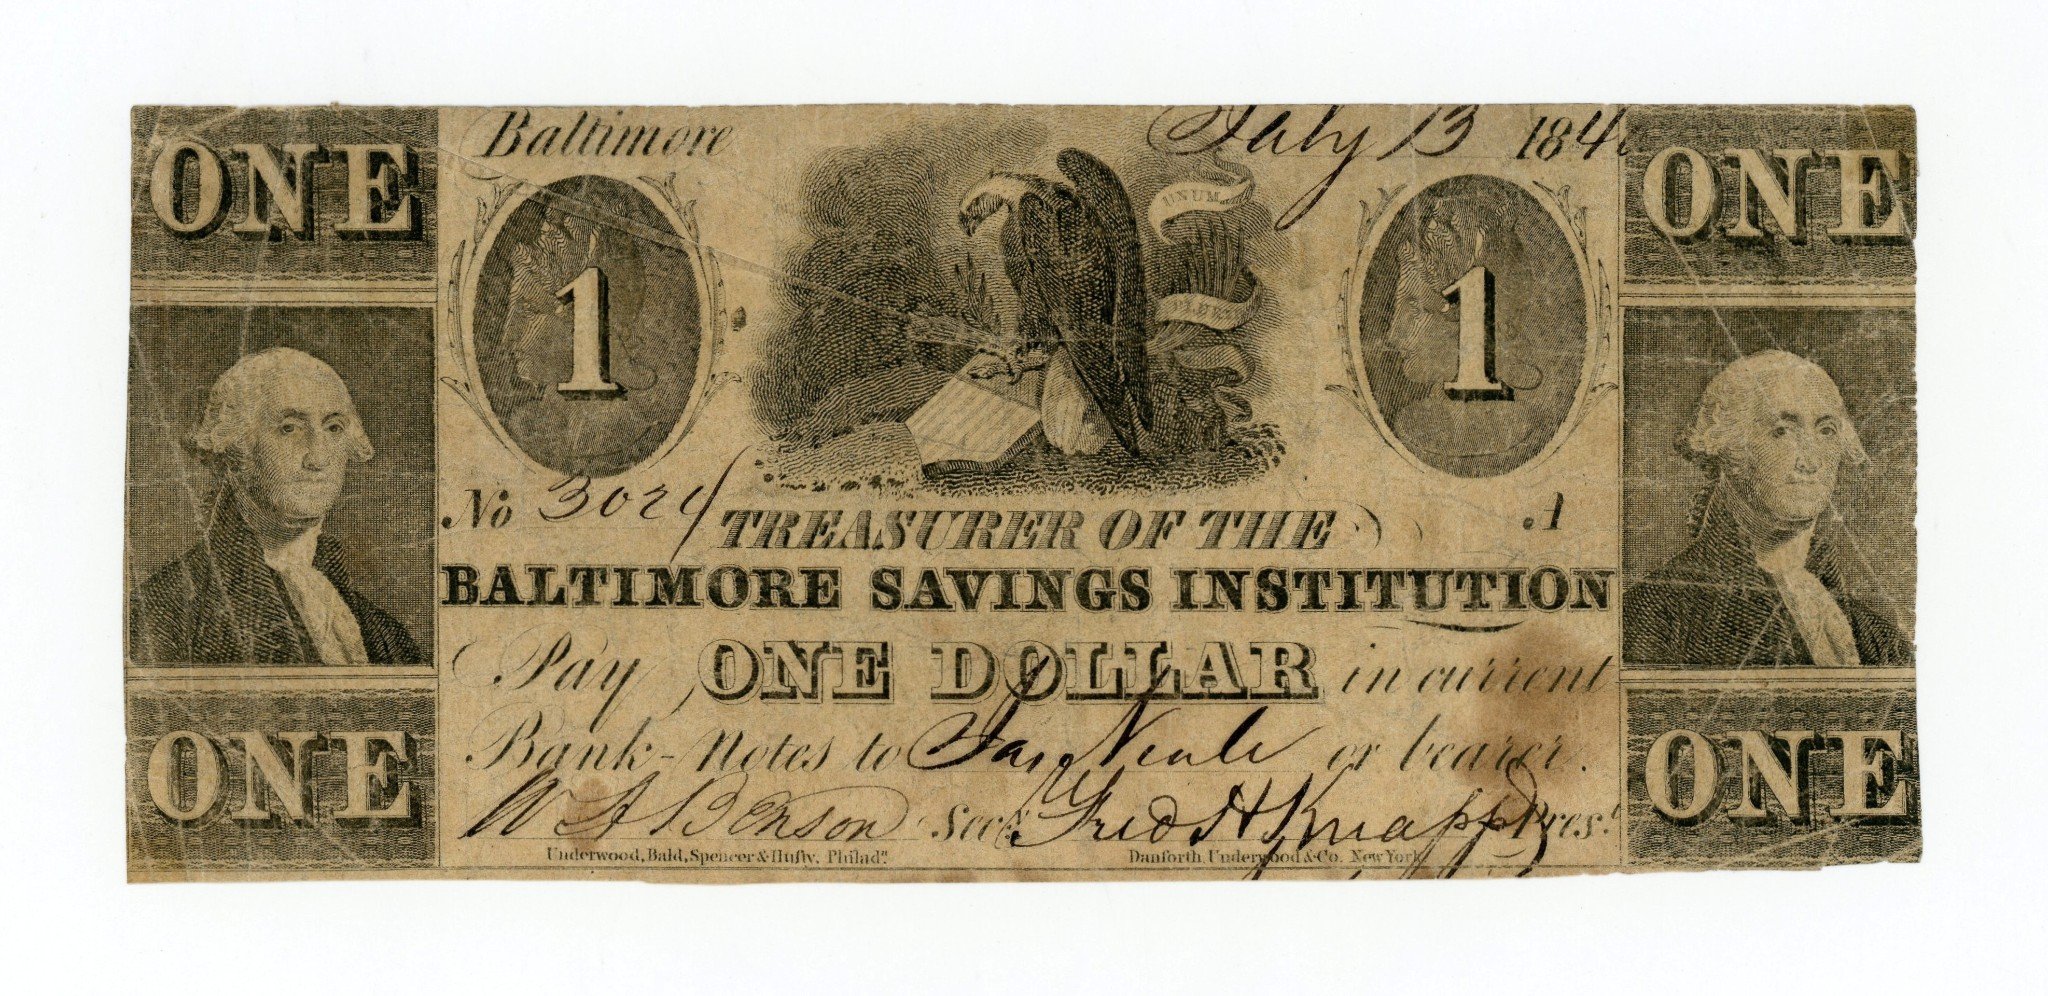 ONE
Baltimore July 13 184
ONE
1
UNUM
1
PLURI
No 3024
A
TREASURER OF THE
BALTIMORE SAVINGS INSTITUTION
Pay ONE DOLLAR in current
Bank-Notes to Jas Neale or bearer.
W A Benson Secy. Fred H Knapp Prest.
ONE
ONE
Underwood, Bald, Spencer & Hufty, Philada. Danforth, Underwood & Co. New York